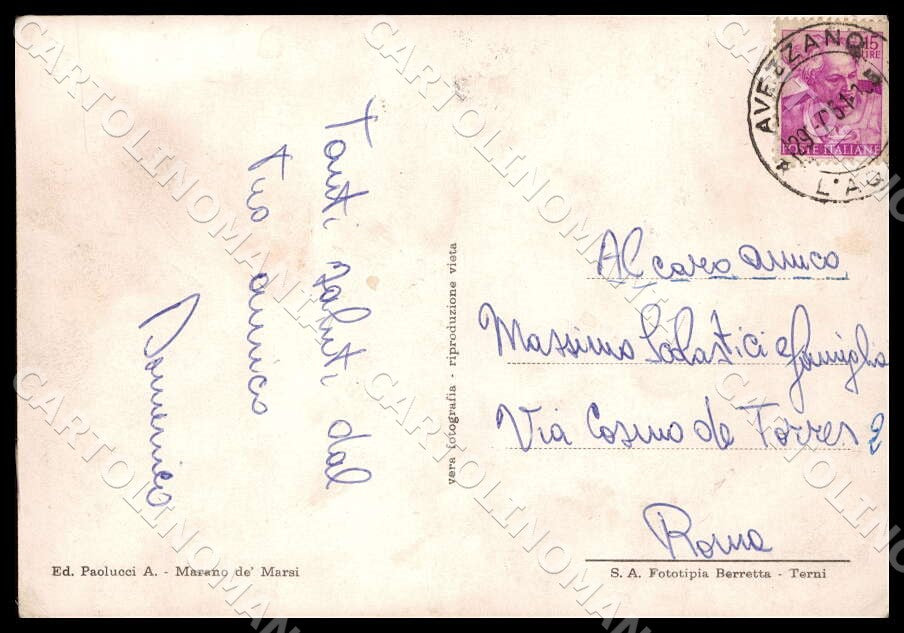 Tanti saluti dal
tuo amico
Domenico
vera fotografia - riproduzione vieta
Ed. Paolucci A. - Marano de' Marsi
15
LIRE
POSTE ITALIANE
AVEZZANO
L'AQ
Al caro amico
Massimo Scolastici e famiglia
Via Cosimo de Torres 2
Roma
S. A. Fototipia Berretta - Terni
CARTOLINOMANIA